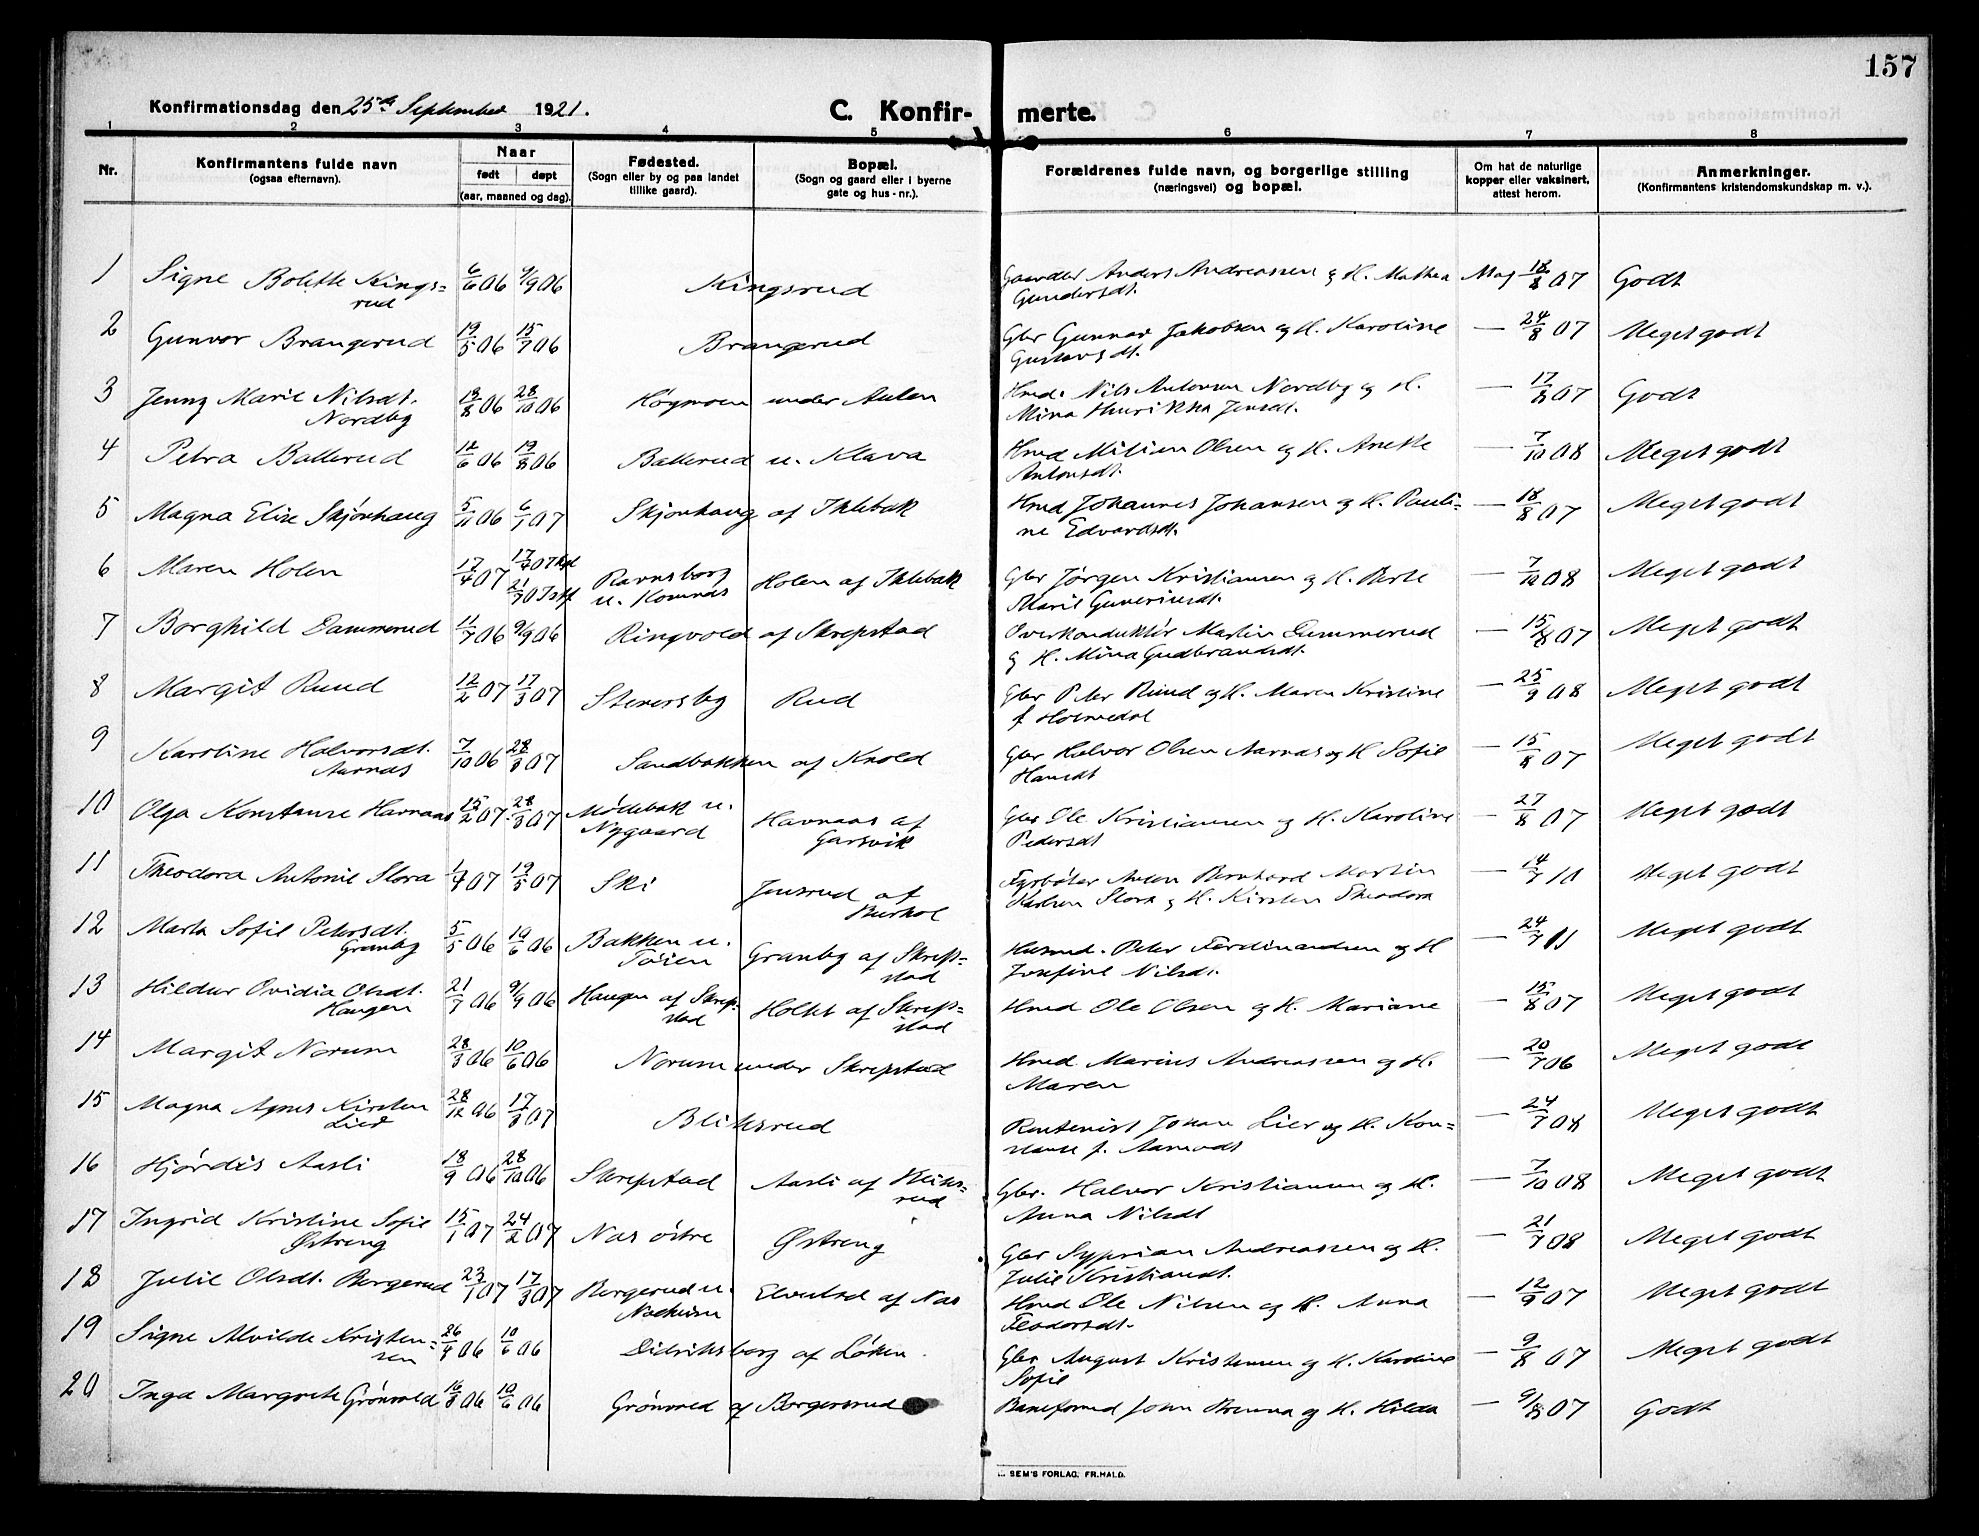 157
Konfirmationsdag den 25de September 1921.
C. Konfir- merte.
1 2 3 4 5 6 7 8
Nr.
Konfirmantens fulde navn
(ogsaa efternavn).
Naar
født døpt
(aar, maaned og dag).
Fødested.
(Sogn eller by og paa landet
tillike gaard).
Bopæl.
(Sogn og gaard eller i byerne
gate og hus - nr.).
Forældrenes fulde navn, og borgerlige stilling
(næringsvei) og bopæl.
Om hat de naturlige
kopper eller vaksinert,
attest herom.
Anmerkninger.
(Konfirmantens kristendomskundskap m. v.).
1 Signe Bolette Kings= 6/6 06 9/9 06 Kingsrud Gaardbr Anders Andreassen g H. Mathea 18/8 07 Godt
rud Gundersdt.
2 Gunvor Brangerud 19/5 06 15/7 06 Brangerud Gbr Gunnar Jakobsen og H. Karoline — 24/8 07 Meget godt
Gustavsdt.
3 Jenny Marie Nilsdt. 18/8 06 28/10 06 Høgmoen under Aulen Hmd. Nils Antonsen Nordby og H. — 17/8 07 Godt
Nordby Mina Henrikka Jensdt.
4 Petra Ballerud 12/6 06 19/8 06 Ballerud u. Klava Hmd Milian Olsen og H. Anette — 7/10 08 Meget godt
Antonsdt.
5 Magna Elise Skjønhaug 5/11 06 6/1 07 Skjønhaug af Iklebak Hmd Johannes Johansen og H. Pauli= — 18/8 07 Meget godt
ne Edvardsdt.
6 Maren Holen 17/4 07 17/4 07 Ravnsborg Holen af Iklebak Gbr Jørgen Kristiansen og H. Berte — 7/10 08 Meget godt
u. Komnæs Marie
7 Borghild Dammerud 11/7 06 9/9 06 Ringvold af Skrepstad Overkonduktør Martin Dammerud — 15/8 07 Meget godt
g H. Mina Gudbrandsdt.
8 Margit Ruud 12/2 07 17/3 07 Stenersby Rud Gbr Peter Ruud og H. Maren Kristine — 25/9 08 Meget godt
f. Holmedal
9 Karoline Halvorsdt. 7/10 06 28/3 07 Sandbakken af Knold Gbr Halvor Olsen Aarnæs og H Sofie — 15/8 07 Meget godt
Aarnæs Hansdt
10 Olga Konstanse Havnaas 15/2 07 28/3 07 Mødebak u. Havnaas af Gbr Ole Kristiansen og H. Karoline — 27/8 07 Meget godt
Nygaard Garsvik Pedersdt
11 Theodora Antonie Slora 1/4 07 19/5 07 Ski Jensrud af Fyrbøter Anton Bernhard Martin — 14/7 10 Meget godt
Karlsen Slora g H. Kirsten Theodora
12 Marta Sofie Petersdt. 5/5 06 10/6 06 Bakken u. Granby af Skreps= Husmd. Peter Ferdinandsen og H — 24/7 11 Meget godt
Granby Tøien stad Josefine Nilsdt.
13 Hildur Ovidia Olsdt. 21/7 06 9/9 06 Haugen af Skrep- Holtet af Skreps= Hmd Ole Olsen og H. Mariane — 15/8 07 Meget godt
Haugen stad stad
14 Margit Norum 28/3 06 10/6 06 Norum under Skrepstad Hmd. Marius Andreassen og H. — 20/7 06 Meget godt
Maren
15 Magna Agnes Kirsten 28/12 06 17/3 07 Bliksrud Rentenist Johan Lier og H. Kon= — 24/7 08 Meget godt
Lier stanse f. Aamodt
16 Hjørdis Aasli 18/9 06 28/10 06 Skrepstad Aasli af Bliks= Gbr. Halvor Kristiansen og H. — 7/10 08 Meget godt
rud Anna Nilsdt
17 Ingrid Kristine Sofie 15/1 07 24/2 07 Nes østre Østreng Gbr Syprian Andreassen og H. — 21/7 08 Meget godt
Østreng Julie Kristiansdt.
18 Julie Olsdt. Bergerud 23/1 07 17/3 07 Bergerud u. af Nes Hmd Ole Nilsen og H. Anna — 12/9 07 Meget godt
Feodorsdt.
19 Signe Alvilde Kristen= 26/4 06 10/6 06 Didriksborg af Løken. Gbr August Kristensen og H. Karoline — 9/8 07 Meget godt
sen Sofie
20 Inga Margrete Grønvold 16/3 06 10/6 06 Grønvold af Borgersrud Baneformd John Brenna og H. Hilda — 9/8 07 Godt
SEM'S FORLAG, FR.HALD.